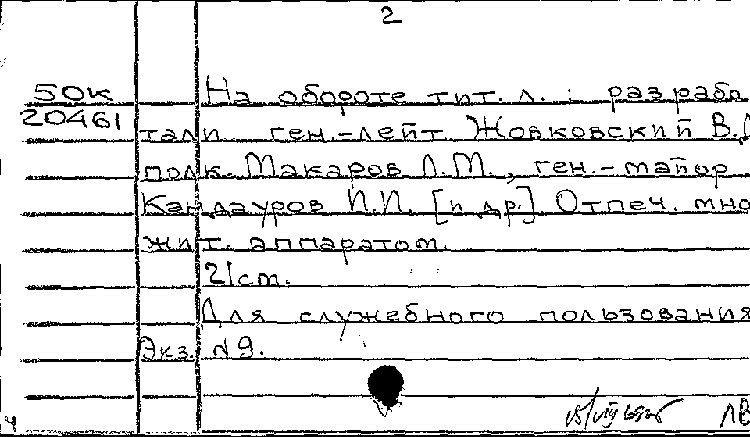 2
50к
20461
На обороте тит. л. : разрабо
тали ген.-лейт. Жовковский В.
полк. Макаров Л.М., ген.-майор
Кандауров И.И. [и др.]. Отпеч. мно
жит. аппаратом.
21см.
Для служебного пользования
Экз. № 9.
ЛВ
ч